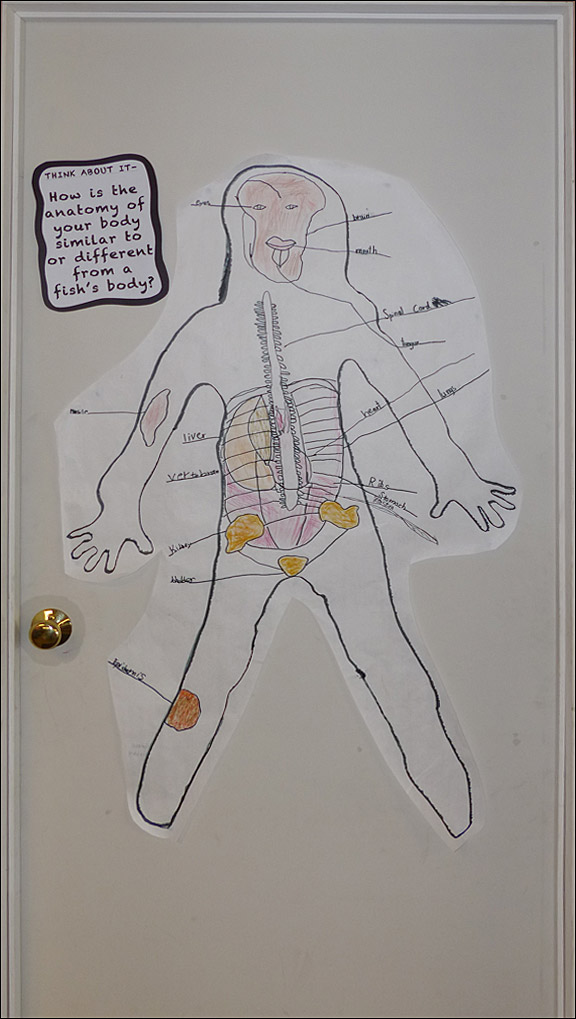 THINK ABOUT IT-
How is the
anatomy of
your body
similar to
or different
from a
fish's body?
eyes
brain
mouth
Spinal Cord
tongue
lungs
heart
liver
Ribs
Stomach